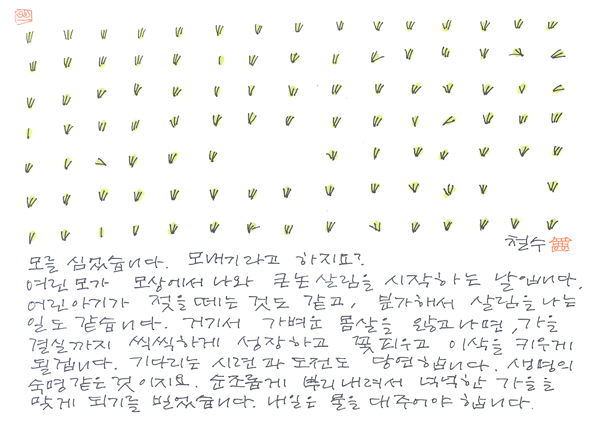 철수
모를 심었습니다. 모내기라고 하지요?
여린 모가 모상에서 나와 큰논 살림을 시작하는 날입니다.
어린아기가 젖을 떼는 것도 같고, 분가해서 살림을 나는
일도 같습니다. 거기서 가벼운 몸살을 앓고나면, 가을
결실까지 씩씩하게 성장하고 꽃피우고 이삭을 키우게
될겝니다. 기다리는 시련과 도전도 당연합니다. 생명의
숙명같은 것이지요. 순조롭게 뿌리내려서 넉넉한 가을을
맞게 되기를 빌었습니다. 내일은 물을 대주어야 합니다.